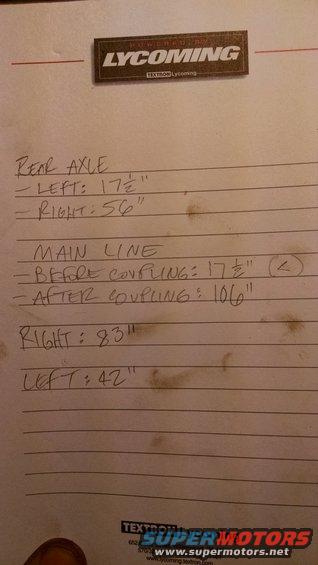 POWERED BY
LYCOMING
TEXTRON Lycoming
REAR AXLE
- LEFT: 17 1/2"
- RIGHT: 56"
MAIN LINE
- BEFORE COUPLING: 17 1/2" (<)
- AFTER COUPLING: 106"
RIGHT: 83"
LEFT: 42"
TEXTRON
www.lycoming.textron.com
SUPERMOTORS
www.supermotors.net